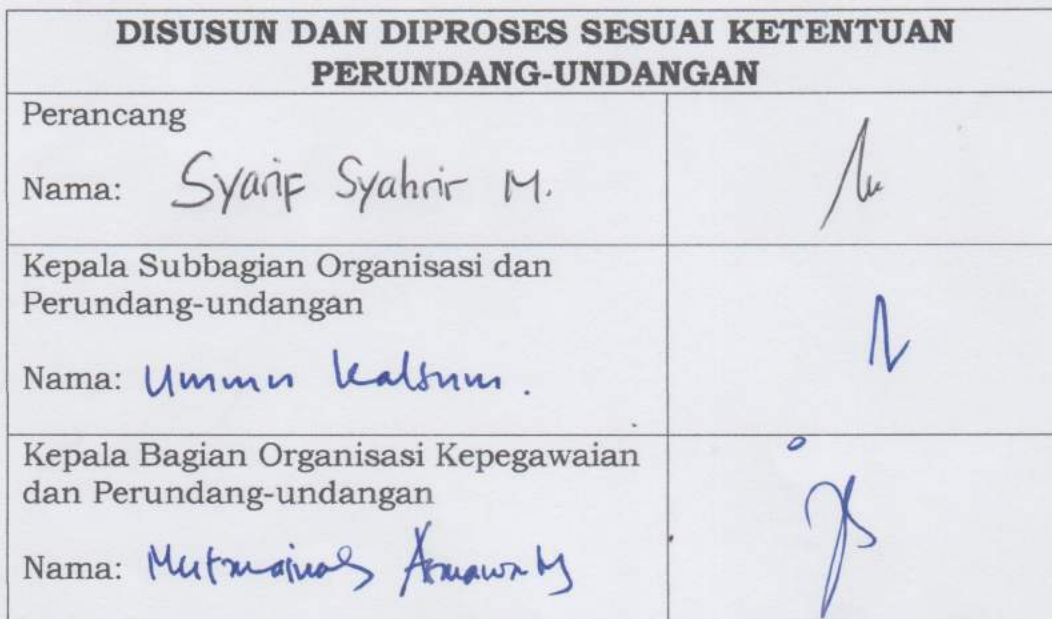 DISUSUN DAN DIPROSES SESUAI KETENTUAN
PERUNDANG-UNDANGAN
Perancang
Nama: Syarif Syahrir M.
Kepala Subbagian Organisasi dan
Perundang-undangan
Nama: Ummu Kalsum.
Kepala Bagian Organisasi Kepegawaian
dan Perundang-undangan
Nama: Mutmainah